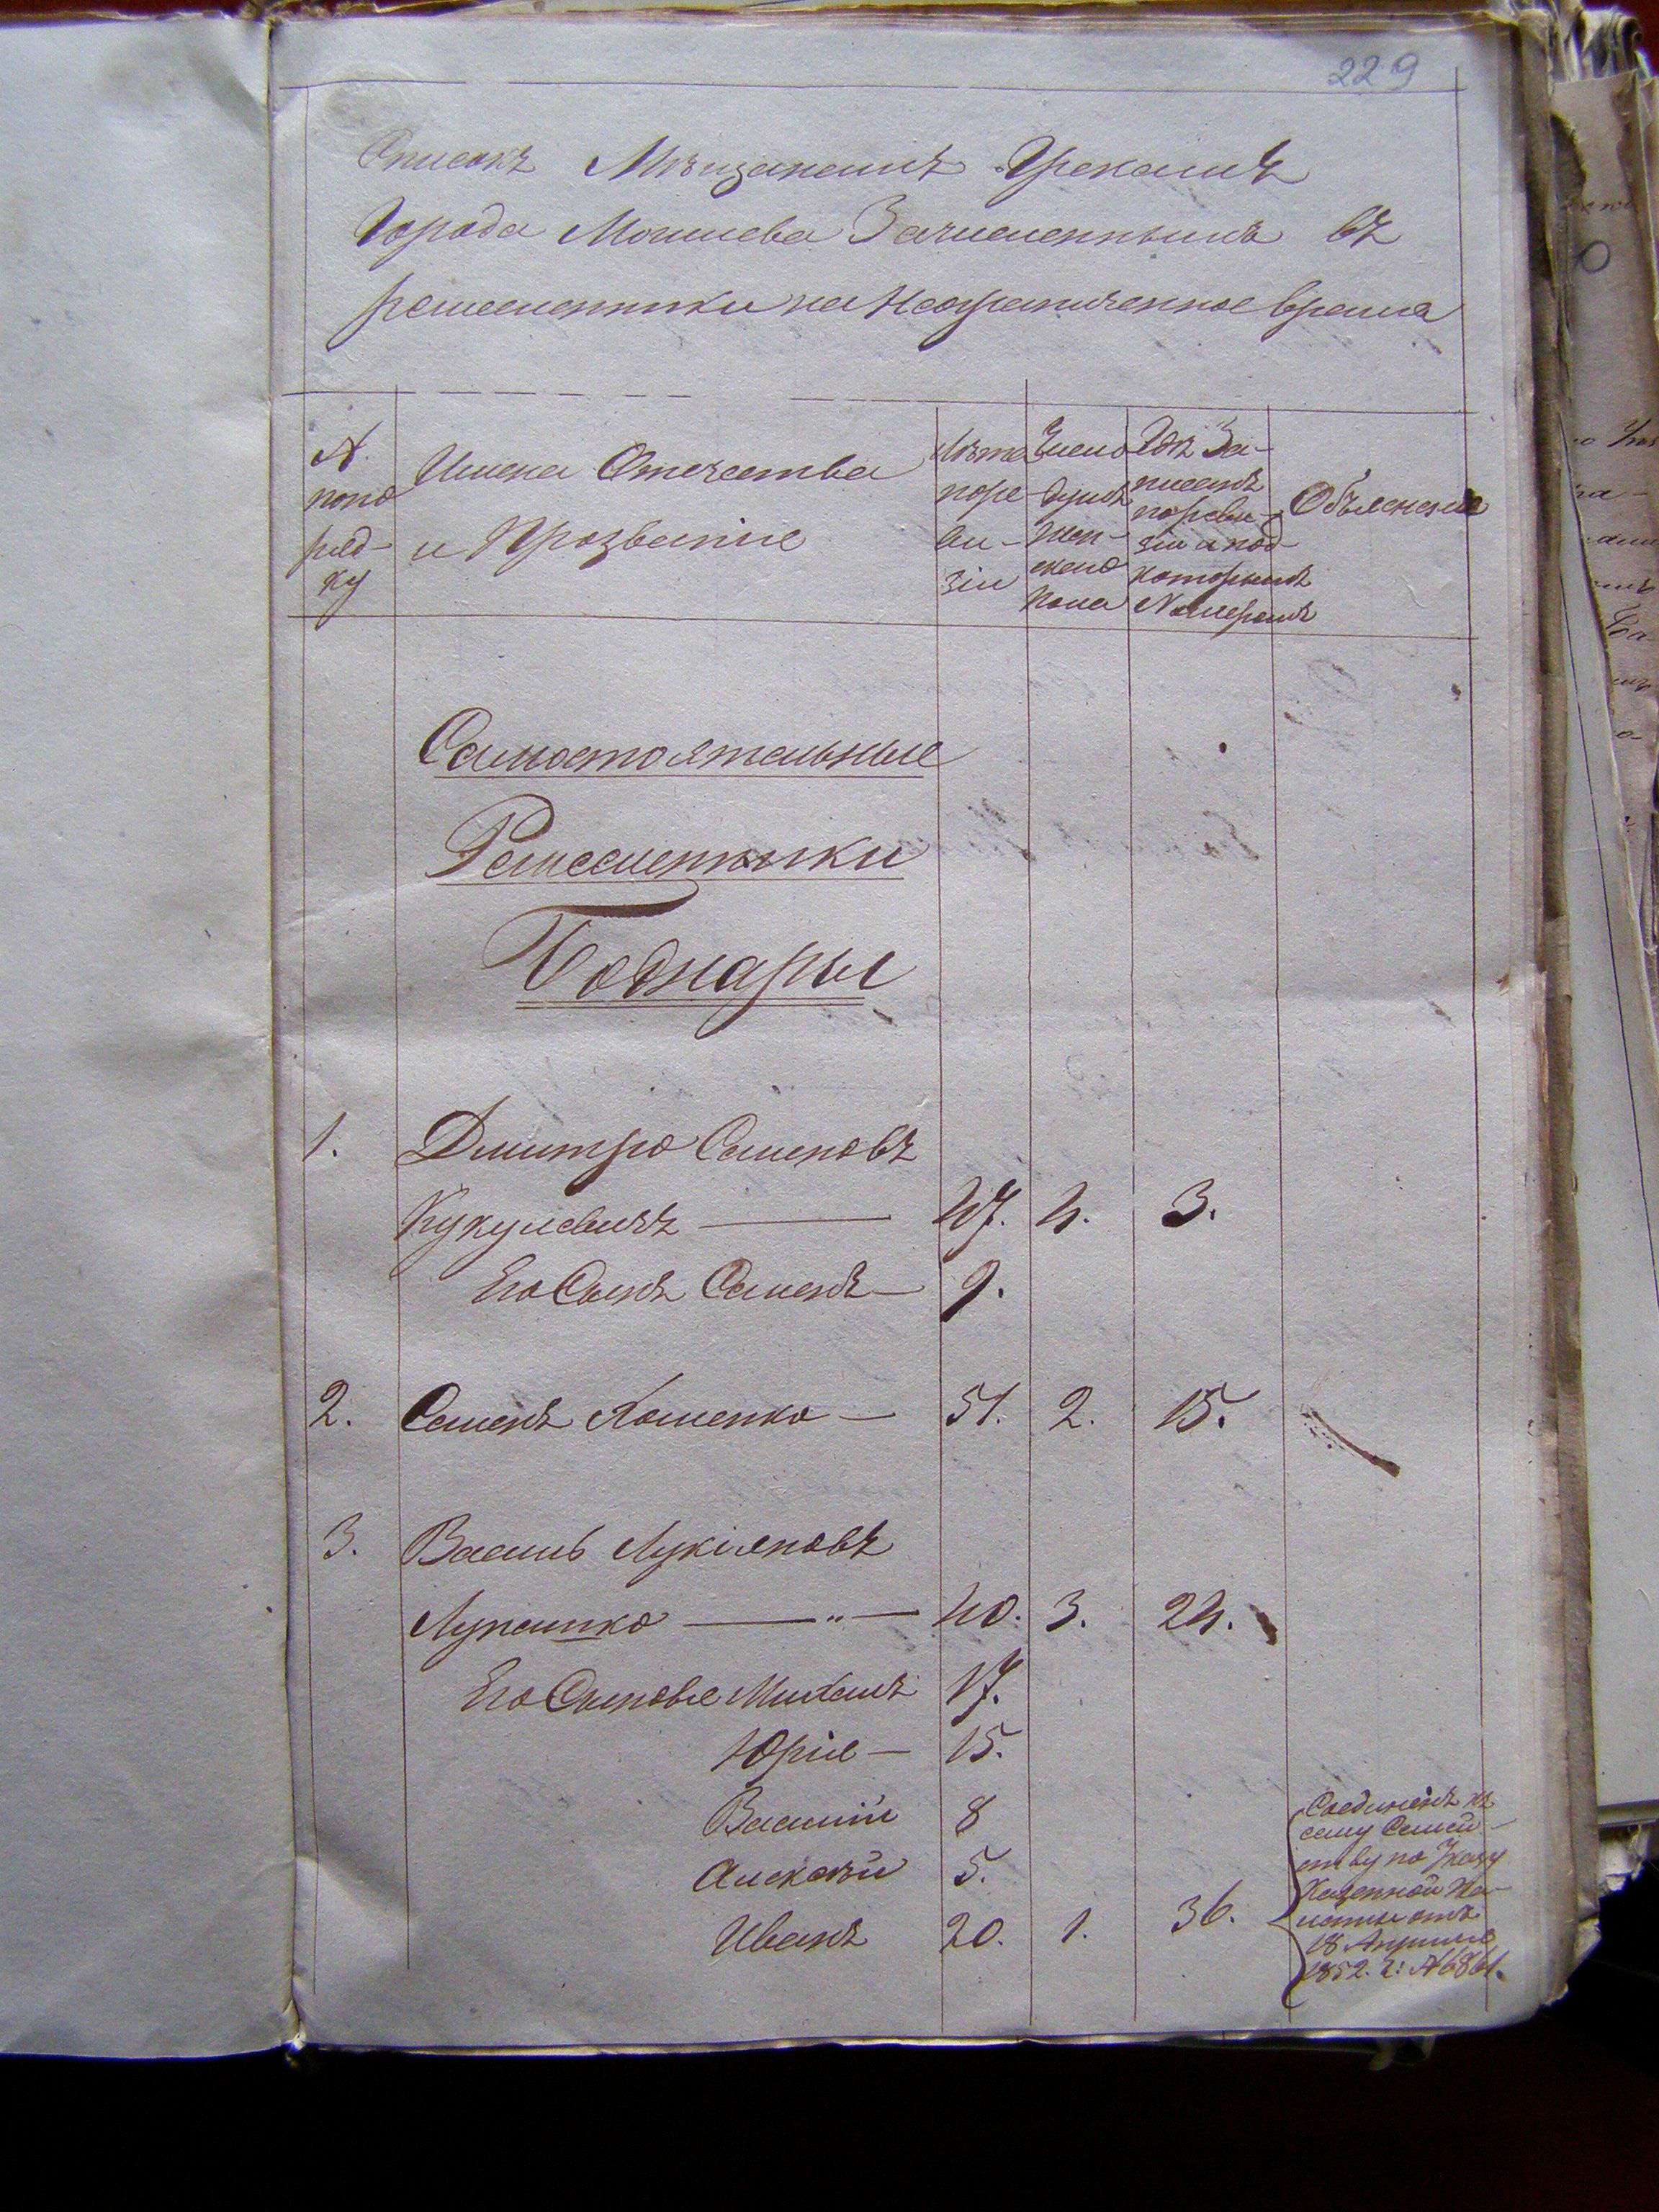 229
Списокъ Мѣщанамъ Грекамъ
Города Могилева Зачисленнымъ въ
ремесленники на Неограниченное время
№ попо рядку
Имена Отечества и Прозваніе
Лѣта по реви-зіи
Число душъ Жен-скаго пола
Гдѣ За-писанъ по реви-зіи и под которымъ Номеромъ
Объясненіе
Самостоятельные
Ремесленники
Боднары
1. Дмитро Семеновъ
Кукулевичъ — 47. 4. 3.
Его Сынъ Семенъ — 9.
2. Семенъ Хоменко — 51. 2. 15.
3. Василь Лукіяновъ
Лупашко — „ — 40. 3. 24.
Его Сыновья Михаилъ 17.
Юрій — 15.
Василій 8
Алексѣй 5.
Иванъ 20. 1. 36.
Соединенъ къ
сему Семей-
ству по Указу
Казенной Па-
латы отъ
18 Апрѣля
1852. г: № 6861.